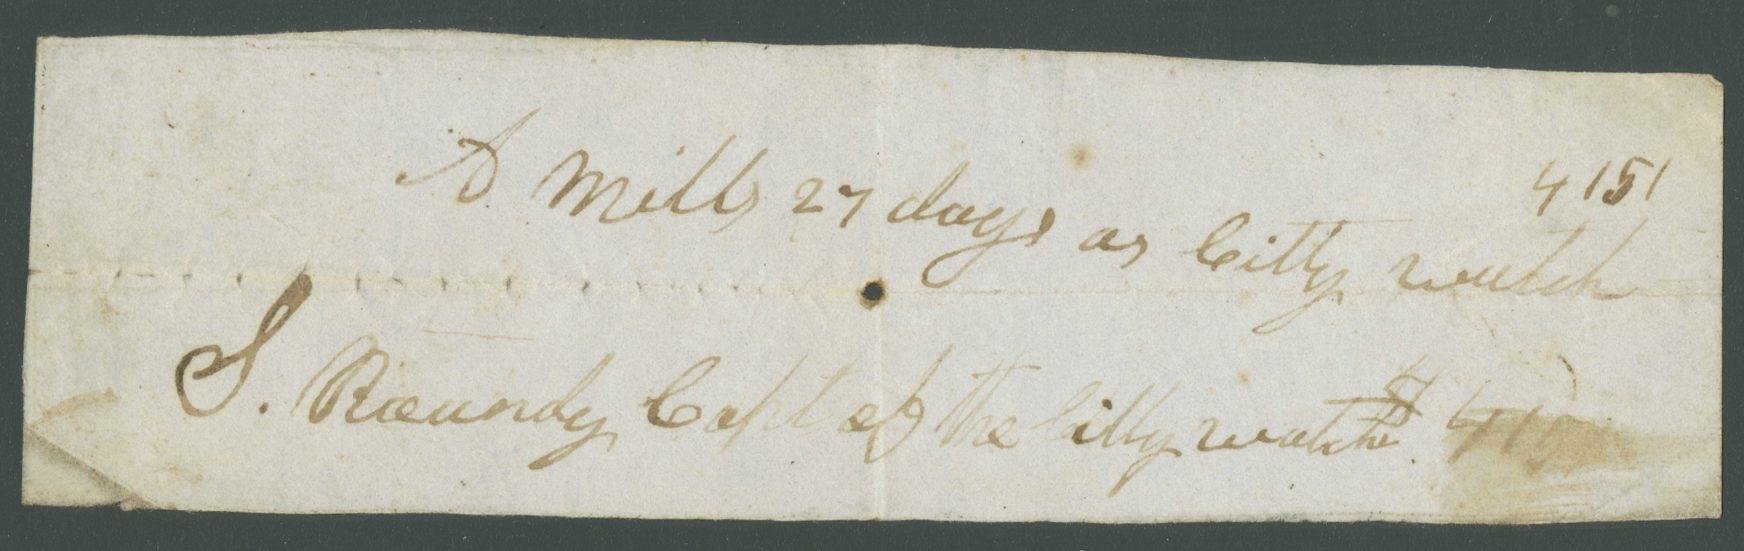 A Mills 27 days as Citty watch 4151
S. Roundy Capt of the Citty watch $